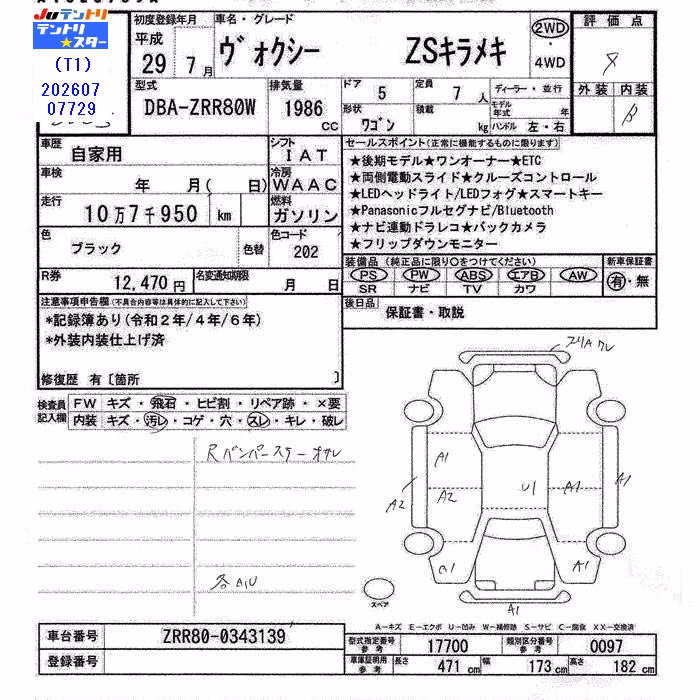 Juテントリ
テントリ
★スター
(T1)
202607
07729
初度登録年月
平成
29年7月
車名・グレード
ヴォクシー ZSキラメキ
2WD
・
4WD
評価点
外装 内装
B
型式
DBA-ZRR80W
排気量
1986
CC
ドア
5
形状
ワゴン
定員
7人
積載
kg
ディーラー・並行
モデル年式 年
ハンドル 左・右
車歴
自家用
シフト
IAT
車検
年 月( 日)
冷房
WAAC
走行
10万7千950 km
燃料
ガソリン
色
ブラック
色替
色コード
202
R券
12,470円
名変通知期限
月 日
セールスポイント(正常に機能するものに限ります)
★後期モデル★ワンオーナー★ETC
★両側電動スライド★クルーズコントロール
★LEDヘッドライト/LEDフォグ★スマートキー
★Panasonicフルセグナビ/Bluetooth
★ナビ連動ドラレコ★バックカメラ
★フリップダウンモニター
装備品(純正品に限り○をつけてください)
PS PW ABS エアB AW
SR ナビ TV カワ
新車保証書
有・無
後日品
保証書・取説
注意事項申告欄(不具合内容等は具体的に記入して下さい)
*記録簿あり(令和2年/4年/6年)
*外装内装仕上げ済
修復歴 有〔箇所 〕
検査員
記入欄
FW キズ・飛石・ヒビ割・リペア跡・×要
内装 キズ・汚レ・コゲ・穴・スレ・キレ・破レ
Rバンパーステーオサレ
各AU
A1
A2
A2
U1
A1
A1
A1
A1
スペア
A1
A-キズ E-エクボ U-凹み W-補修跡 S-サビ C-腐食 XX-交換済
車台番号
ZRR80-0343139
登録番号
型式指定番号
参考
17700
類別区分番号
参考
0097
車庫証明用
参考
長さ 471 cm 幅 173 cm 高さ 182 cm